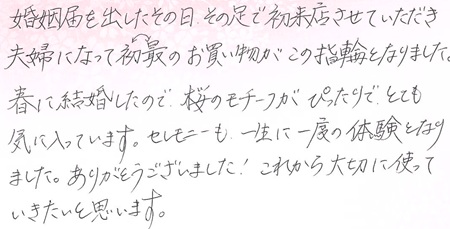 婚姻届を出したその日、その足で初来店させていただき
夫婦になって初最のお買い物がこの指輪となりました。
春に結婚したので、桜のモチーフがぴったりで、とても
気に入っています。セレモニーも、一生に一度の体験となり
ました。ありがとうございました！これから大切に使って
いきたいと思います。